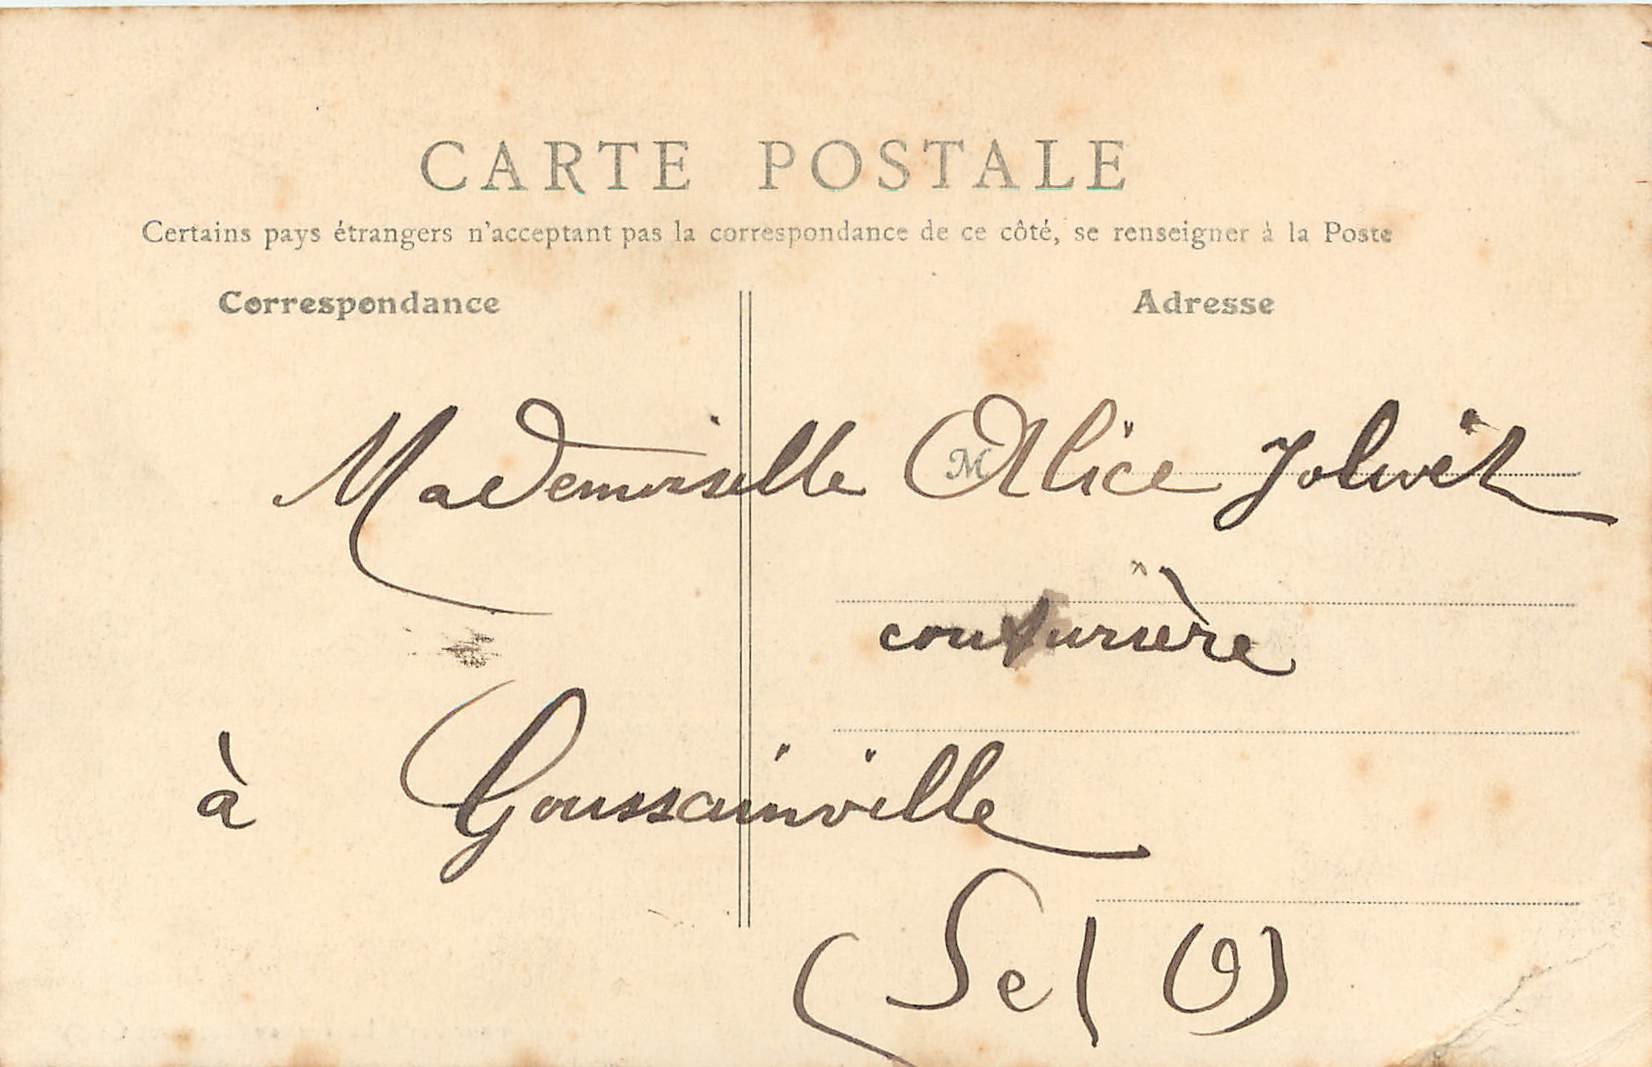 CARTE POSTALE
Certains pays étrangers n'acceptant pas la correspondance de ce côté, se renseigner à la Poste
Correspondance
Adresse
M
Mademoiselle Alice Jolivet
couturière
à Goussainville
(Se (O)